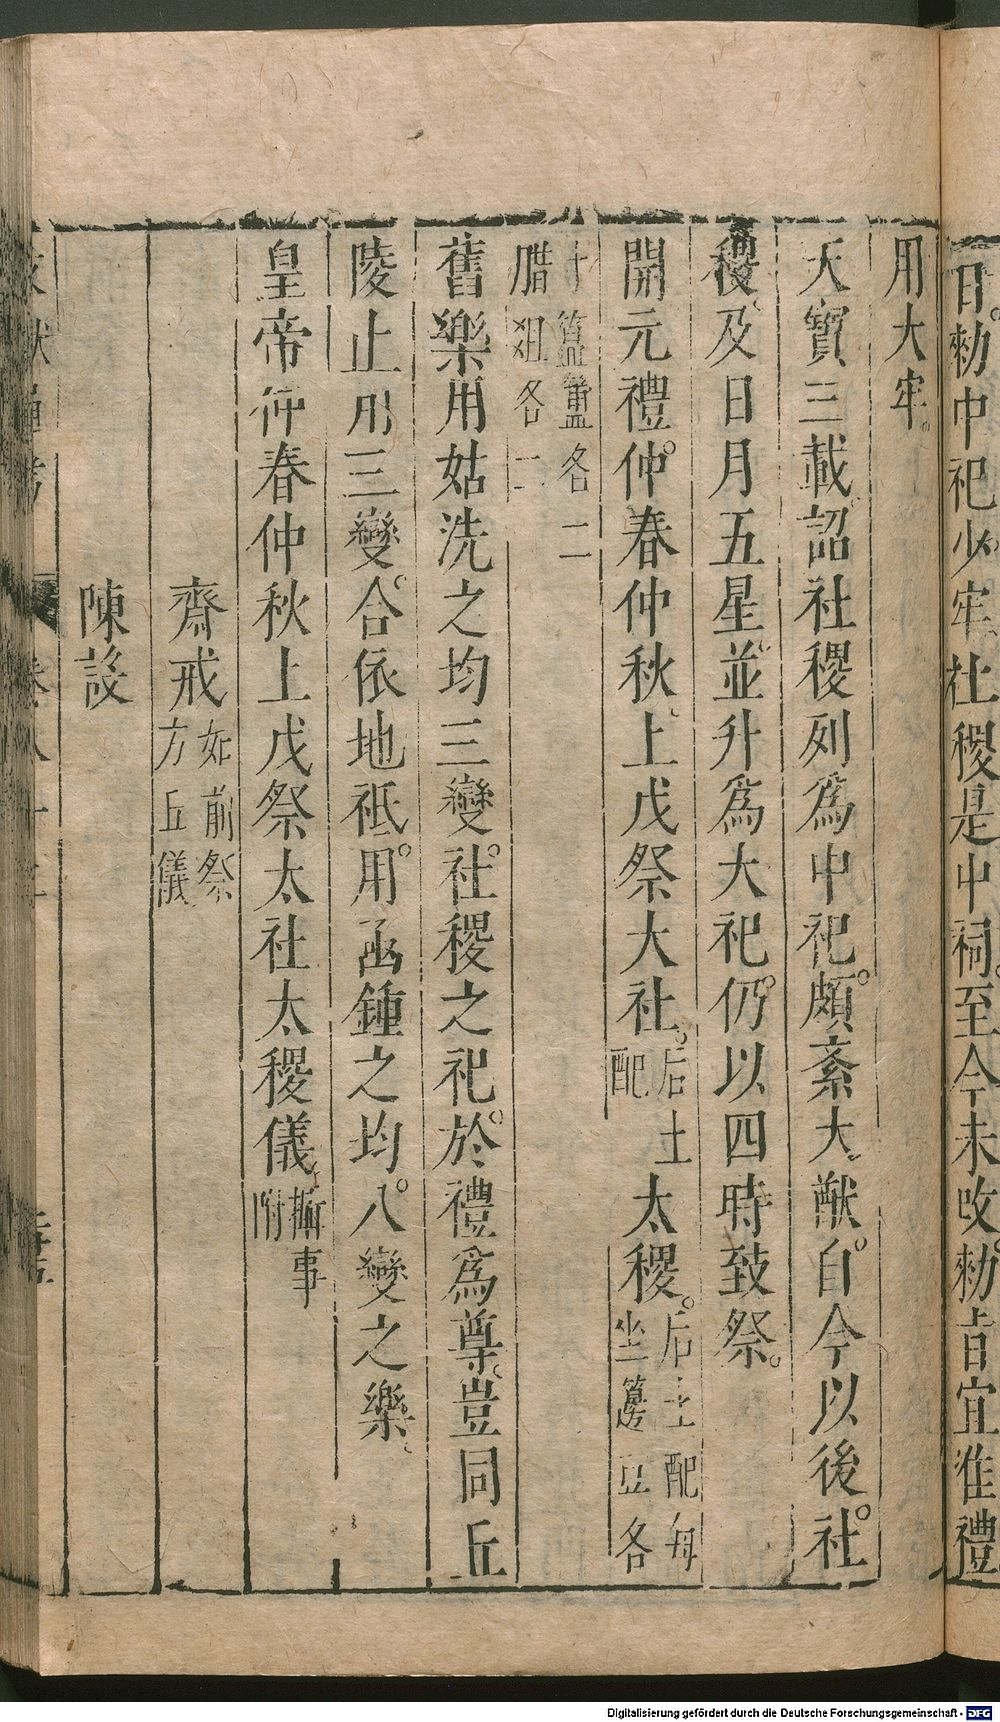 日勑中祀少牢社稷是中祠至今未改勑旨宜准禮
用大牢
天寶三載詔社稷列爲中祀頗紊大猷自今以後社
稷及日月五星並升爲大祀仍以四時致祭
開元禮仲春仲秋上戊祭大社后土配太稷后土配每坐籩豆各
十簋簠各二腊俎各二
舊樂用姑洗之均三變社稷之祀於禮爲尊豈同丘
陵止用三變合依地祇用函鍾之均八變之樂
皇帝仲春仲秋上戊祭太社太稷儀攝事附
齋戒如前祭方丘儀
陳設
Digitalisierung gefördert durch die Deutsche Forschungsgemeinschaft - DFG